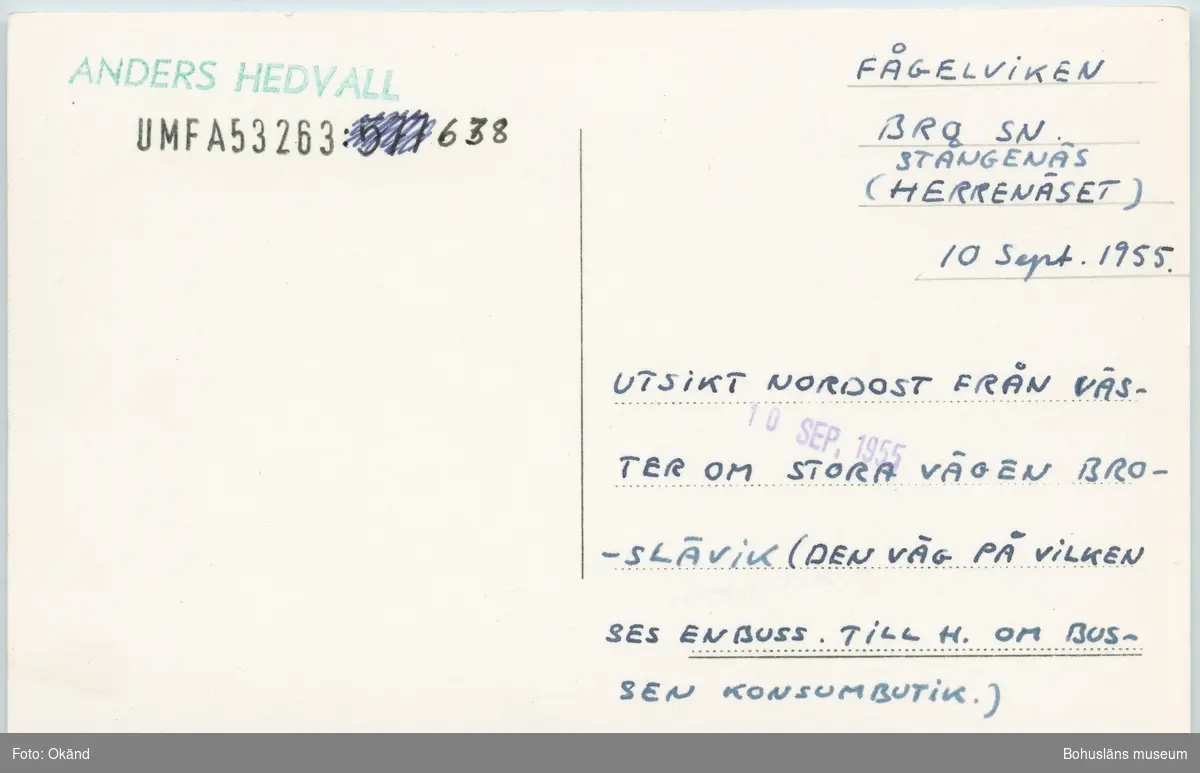 ANDERS HEDVALL
UMFA53263: 638
FÅGELVIKEN
BRO SN.
STÅNGENÄS
(HERRENÄSET)
10 Sept. 1955.
UTSIKT NORDOST FRÅN VÄS-
10 SEP. 1955
TER OM STORA VÄGEN BRO-
-SLÄVIK (DEN VÄG PÅ VILKEN
SES EN BUSS. TILL H. OM BUS-
SEN KONSUMBUTIK.)
Foto: Okänd
Bohusläns museum